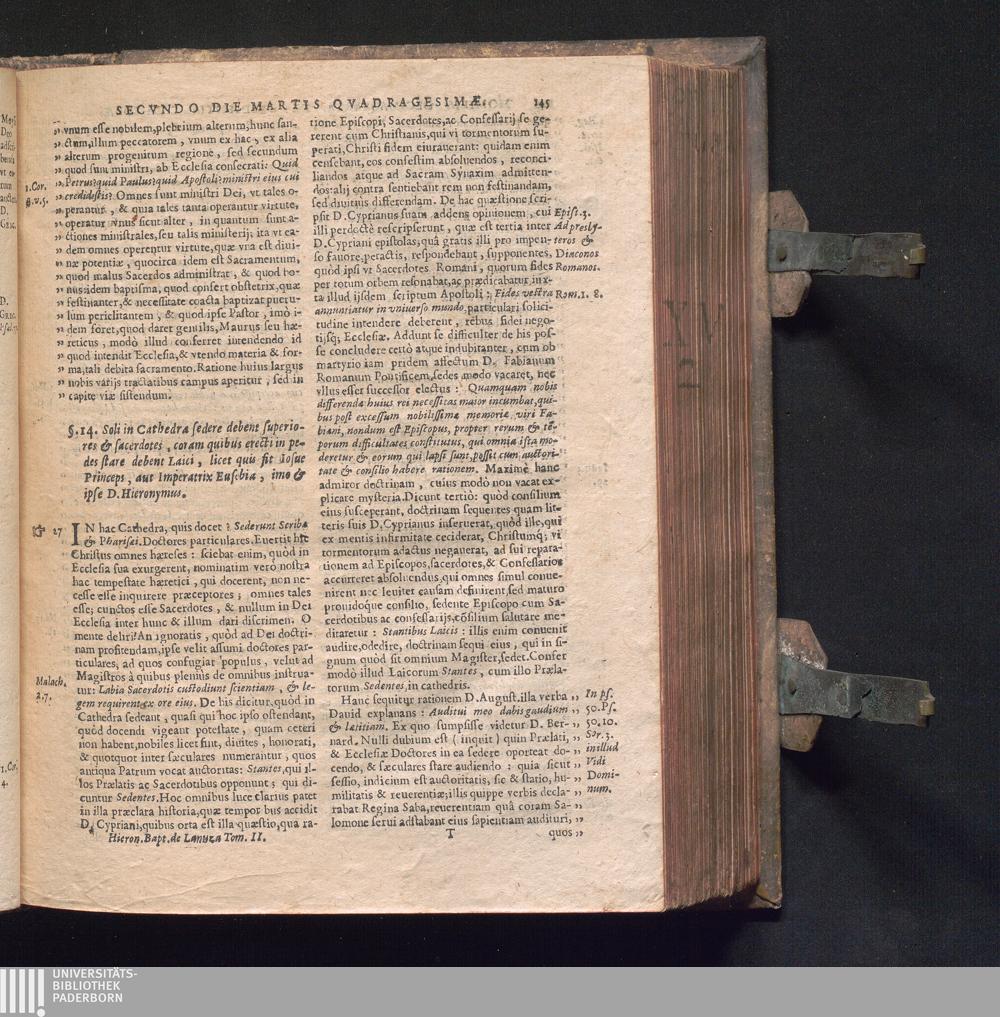 SECVNDO DIE MARTIS QVADRAGESIMÆ. 145
vnum esse nobilem, plebeium alterum, hunc san-
ctum, illum peccatorem, vnum ex hac, ex alia
alterum progenitum regione, sed secundum
quod sunt ministri, ab Ecclesia consecrati: Quid
1. Cor. Petrus? quid Paulus? quid Apostoli? ministri eius cui
credidistis? Omnes sunt ministri Dei, vt tales o-
perantur, & quia tales tanta operantur virtute,
operatur vnus sicut alter, in quantum sunt a-
ctiones ministrales, seu talis ministerij: ita vt ea-
dem omnes operentur virtute, quæ vna est diui-
næ potentiæ, quocirca idem est Sacramentum,
quod malus Sacerdos administrat, & quod bo-
nus: idem baptisma, quod confert obstetrix, quæ
festinanter, & necessitate coacta baptizat pueru-
lum periclitantem, & quod ipse Pastor, imò i-
dem foret, quod daret gentilis, Maurus seu hæ-
reticus, modò illud conferret intendendo id
quod intendit Ecclesia, & vtendo materia & for-
ma, tali debita sacramento. Ratione huius largus
nobis varijs tractatibus campus aperitur, sed in
capite viæ sistendum.
§. 14. Soli in Cathedra sedere debent superio-
res & sacerdotes, coram quibus erecti in pe-
des stare debent Laici, licet quis sit Iosue
Princeps, aut Imperatrix Eusebia, imo &
ipse D. Hieronymus.
27 IN hac Cathedra, quis docet? Sederunt Scribæ
& Pharisæi. Doctores particulares. Euertit hîc
Christus omnes hæreses: sciebat enim, quòd in
Ecclesia sua exurgerent, nominatim verò nostra
hac tempestate hæretici, qui docerent, non ne-
cesse esse inquirere præceptores; omnes tales
esse; cunctos esse Sacerdotes, & nullum in Dei
Ecclesia inter hunc & illum dari discrimen. O
mente deliri! An ignoratis, quòd ad Dei doctri-
nam profitendam, ipse velit assumi doctores par-
ticulares, ad quos confugiat populus, velut ad
Magistros à quibus plenius de omnibus instrua-
Malach. tur: Labia Sacerdotis custodiunt scientiam, & le-
2.7. gem requirent ex ore eius. De his dicitur, quòd in
Cathedra sedeant, quasi qui hoc ipso ostendant,
quòd docendi vigeant potestate, quam ceteri
non habent, nobiles licet sint, diuites, honorati,
& quotquot inter sæculares numerantur, quos
antiqua Patrum vocat auctoritas: Stantes, qui il-
los Prælatis ac Sacerdotibus opponunt; qui di-
cuntur Sedentes. Hoc omnibus luce clarius patet
in illa præclara historia, quæ temporibus accidit
D. Cypriani, quibus orta est illa quæstio, qua ra-
Hieron. Bapt. de Lanuza Tom. II.
tione Episcopi, Sacerdotes, ac Confessarij se ge-
rerent cum Christianis, qui vi tormentorum su-
perati, Christi fidem eiurauerant: quidam enim
censebant, eos confestim absoluendos, reconci-
liandos atque ad Sacram Synaxim admitten-
dos: alij contra sentiebant rem non festinandam,
sed diutius differendam. De hac quæstione scri-
psit D. Cyprianus suam addens opinionem, cui Epist. 3.
illi perdoctè rescripserunt, quæ est tertia inter Ad presby-
D. Cypriani epistolas, quâ gratis illi pro impen- teros &
so fauore, peractis, respondebant, supponentes, Diaconos
quòd ipsi vt Sacerdotes Romani, quorum fides Romanos.
per totum orbem resonabat, ac prædicabatur, iux-
ta illud ijsdem scriptum Apostoli: Fides vestra Rom. 1. 8.
annuntiatur in vniuerso mundo, particulari solici-
tudine intendere deberent, rebus fidei nego-
tijsq; Ecclesiæ. Addunt se difficulter de his pos-
se concludere certò atque indubitanter, cum ob
martyrio iam pridem affectum D. Fabianum
Romanum Pontificem, sedes modo vacaret, nec
vllus esset successor electus: Quamquam nobis
differendæ huius rei necessitas maior incumbat, qui-
bus post excessum nobilissimæ memoriæ viri Fa-
biani, nondum est Episcopus, propter rerum & tē-
porum difficultates constitutus, qui omnia ista mo-
deretur & eorum qui lapsi sunt, possit cum auctori-
tate & consilio habere rationem. Maximè hanc
admiror doctrinam, cuius modò non vacat ex-
plicare mysteria. Dicunt tertiò: quòd consilium
eius susceperant, doctrinam sequentes quam lit-
teris suis D. Cyprianus inseruerat, quòd ille, qui
ex mentis infirmitate ceciderat, Christumq; vi
tormentorum adactus negauerat, ad sui repara-
tionem ad Episcopos, sacerdotes, & Confessarios
accurreret absoluendus, qui omnes simul conue-
nirent nec leuiter causam definirent, sed maturo
prouidoque consilio, sedente Episcopo cum Sa-
cerdotibus ac confessarijs, cōsilium salutare me-
ditaretur: Stantibus Laicis: illis enim conuenit
audire, odedire, doctrinam sequi eius, qui in si-
gnum quòd sit omnium Magister, sedet. Confer
modò illud Laicorum Stantes, cum illo Præla-
torum Sedentes, in cathedris.
Hanc sequitur rationem D. August. illa verba In ps.
Dauid explanans: Auditui meo dabis gaudium 50. Ps.
& lætitiam. Ex quo sumpsisse videtur D. Ber- 50. 10.
nard. Nulli dubium est (inquit) quin Prælati, Ser. 3.
& Ecclesiæ Doctores in ea sedere oporteat do- in illud
cendo, & sæculares stare audiendo: quia sicut Vidi
sessio, indicium est auctoritatis, sic & statio, hu- Domi-
militatis & reuerentiæ; illis quippe verbis decla- num.
rabat Regina Saba, reuerentiam quâ coram Sa-
lomone serui adstabant eius sapientiam audituri,
T quos
UNIVERSITÄTS-
BIBLIOTHEK
PADERBORN